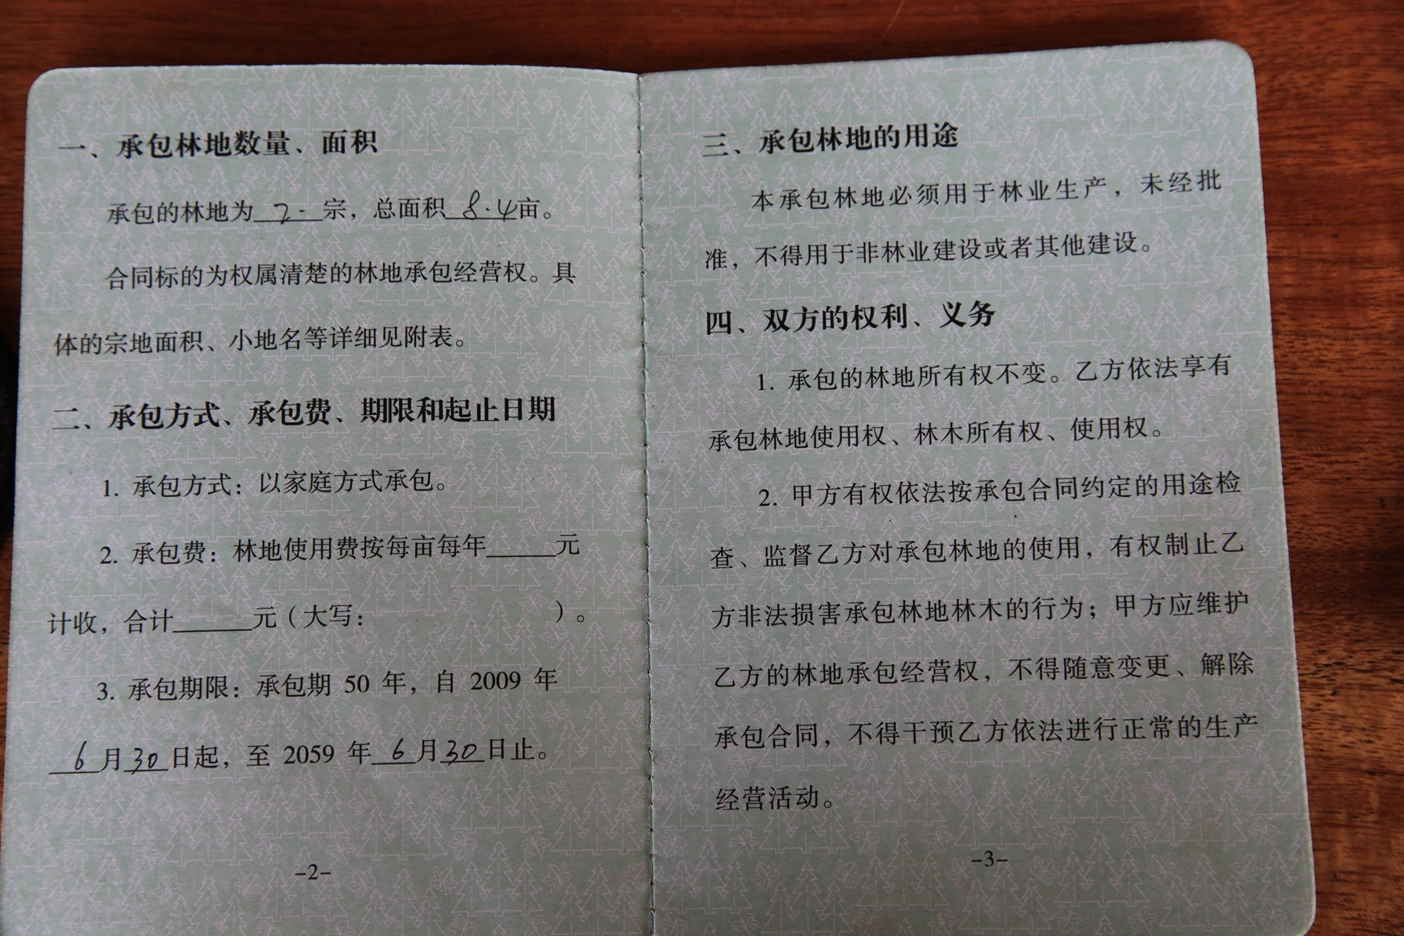 一、承包林地数量、面积
承包的林地为 2 宗，总面积 8.4 亩。
合同标的为权属清楚的林地承包经营权。具
体的宗地面积、小地名等详细见附表。
二、承包方式、承包费、期限和起止日期
1. 承包方式：以家庭方式承包。
2. 承包费：林地使用费按每亩每年______元
计收，合计______元（大写： ）。
3. 承包期限：承包期 50 年，自 2009 年
6 月 30 日起，至 2059 年 6 月 30 日止。
-2-
三、承包林地的用途
本承包林地必须用于林业生产，未经批
准，不得用于非林业建设或者其他建设。
四、双方的权利、义务
1. 承包的林地所有权不变。乙方依法享有
承包林地使用权、林木所有权、使用权。
2. 甲方有权依法按承包合同约定的用途检
查、监督乙方对承包林地的使用，有权制止乙
方非法损害承包林地林木的行为；甲方应维护
乙方的林地承包经营权，不得随意变更、解除
承包合同，不得干预乙方依法进行正常的生产
经营活动。
-3-